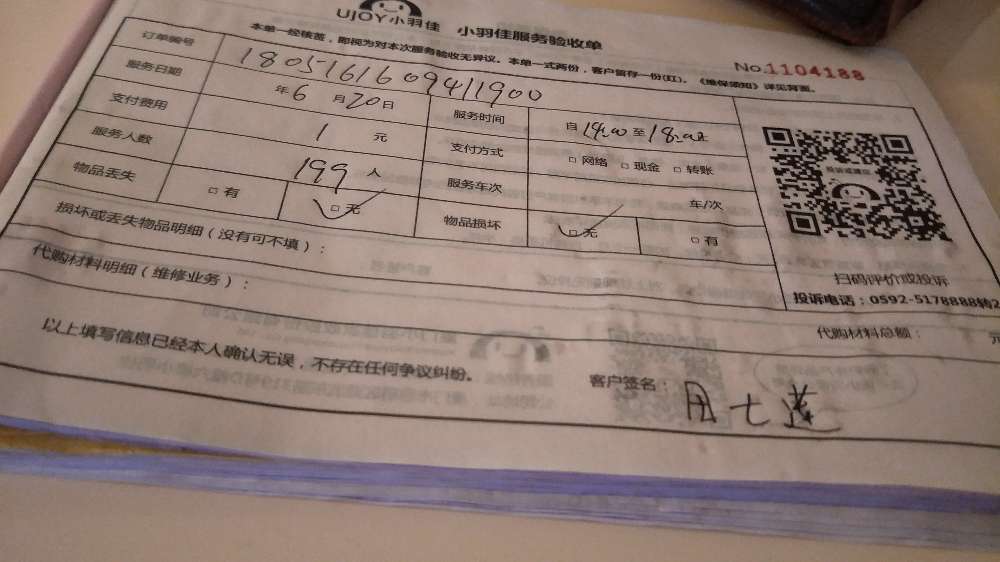 UJOY小羽佳 小羽佳服务验收单
No.1104188
本单一经核签，即视为对本次服务验收无异议。本单一式两份，客户留存一份(红)。《维保须知》详见背面。
订单编号 180516160941900
服务日期 年6月20日 服务时间 自14:00至18:00
支付费用 1 元 支付方式 □网络 □现金 □转账
服务人数 199 人 服务车次 车/次
物品丢失 □有 □无 物品损坏 □无 □有
损坏或丢失物品明细（没有可不填）：
扫码评价或投诉
投诉电话：0592-5178888转2
代购材料明细（维修业务）：
代购材料总额： 元
以上填写信息已经本人确认无误，不存在任何争议纠纷。
客户签名：